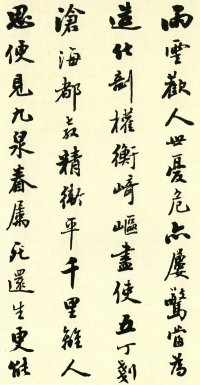 雨雲歡人世憂危亦屢驚當為
造化剖權衡崎嶇盡使五丁剗
滄海都教精衛平千里離人
思便見九泉眷屬死還生更能